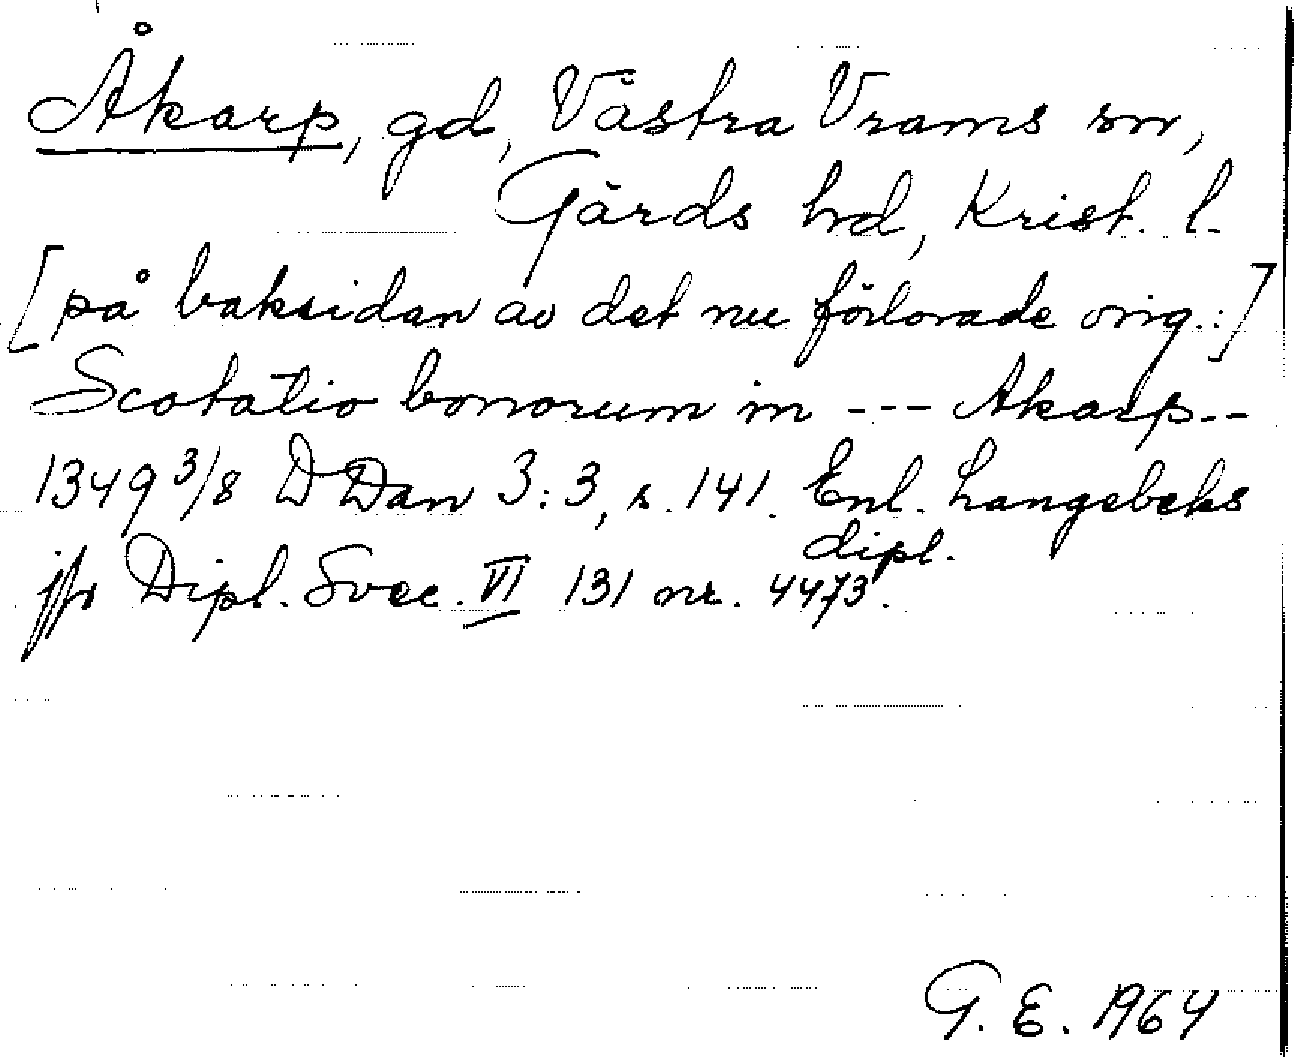 Åkarp, gd, Västra Vrams sn,
Gärds hrd, Krist. l.
[på baksidan av det nu förlorade orig.:]
Scotatio bonorum in --- Akarp--
1349 3/8 DDan 3:3, s. 141. Enl. Langebeks
dipl.
jfr Dipl. Svec. VI 131 nr. 4473.
G. E. 1964